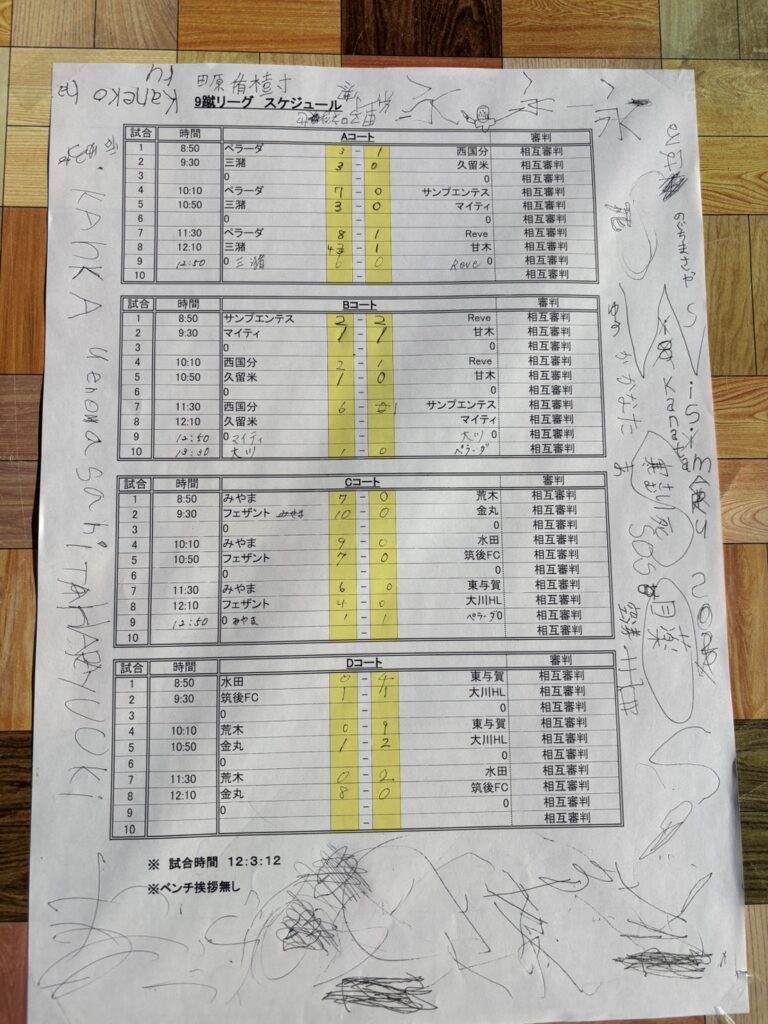 Kaneko ha
田原
9蹴リーグ スケジュール
試合 時間 Aコート 審判
1 8:50 ペラーダ 3 - 1 西国分 相互審判
2 9:30 三潴 3 - 0 久留米 相互審判
3 0 - 0 相互審判
4 10:10 ペラーダ 7 - 0 サンプエンテス 相互審判
5 10:50 三潴 3 - 0 マイティ 相互審判
6 0 - 0 相互審判
7 11:30 ペラーダ 8 - 1 Reve 相互審判
8 12:10 三潴 - 1 甘木 相互審判
9 12:50 0 三潴 6 - 0 Reve 0 相互審判
10 - 相互審判
試合 時間 Bコート 審判
1 8:50 サンプエンテス 2 - 2 Reve 相互審判
2 9:30 マイティ 1 - 1 甘木 相互審判
3 0 - 0 相互審判
4 10:10 西国分 2 - 1 Reve 相互審判
5 10:50 久留米 1 - 0 甘木 相互審判
6 0 - 0 相互審判
7 11:30 西国分 6 - 1 サンプエンテス 相互審判
8 12:10 久留米 - マイティ 相互審判
9 12:50 0 マイティ - 大川 0 相互審判
10 13:30 大川 1 - 0 ペラーダ 相互審判
試合 時間 Cコート 審判
1 8:50 みやま 7 - 0 荒木 相互審判
2 9:30 フェザント 10 - 0 金丸 相互審判
3 0 - 0 相互審判
4 10:10 みやま 9 - 0 水田 相互審判
5 10:50 フェザント 7 - 0 筑後FC 相互審判
6 0 - 0 相互審判
7 11:30 みやま 6 - 0 東与賀 相互審判
8 12:10 フェザント 4 - 0 大川HL 相互審判
9 12:50 0 みやま 1 - 1 ペラーダ 0 相互審判
10 - 相互審判
試合 時間 Dコート 審判
1 8:50 水田 0 - 4 東与賀 相互審判
2 9:30 筑後FC 1 - 1 大川HL 相互審判
3 0 - 0 相互審判
4 10:10 荒木 0 - 9 東与賀 相互審判
5 10:50 金丸 1 - 2 大川HL 相互審判
6 0 - 0 相互審判
7 11:30 荒木 0 - 2 水田 相互審判
8 12:10 金丸 8 - 0 筑後FC 相互審判
9 0 - 0 相互審判
10 - 相互審判
※ 試合時間 12:3:12
※ベンチ挨拶無し
SOS
目薬